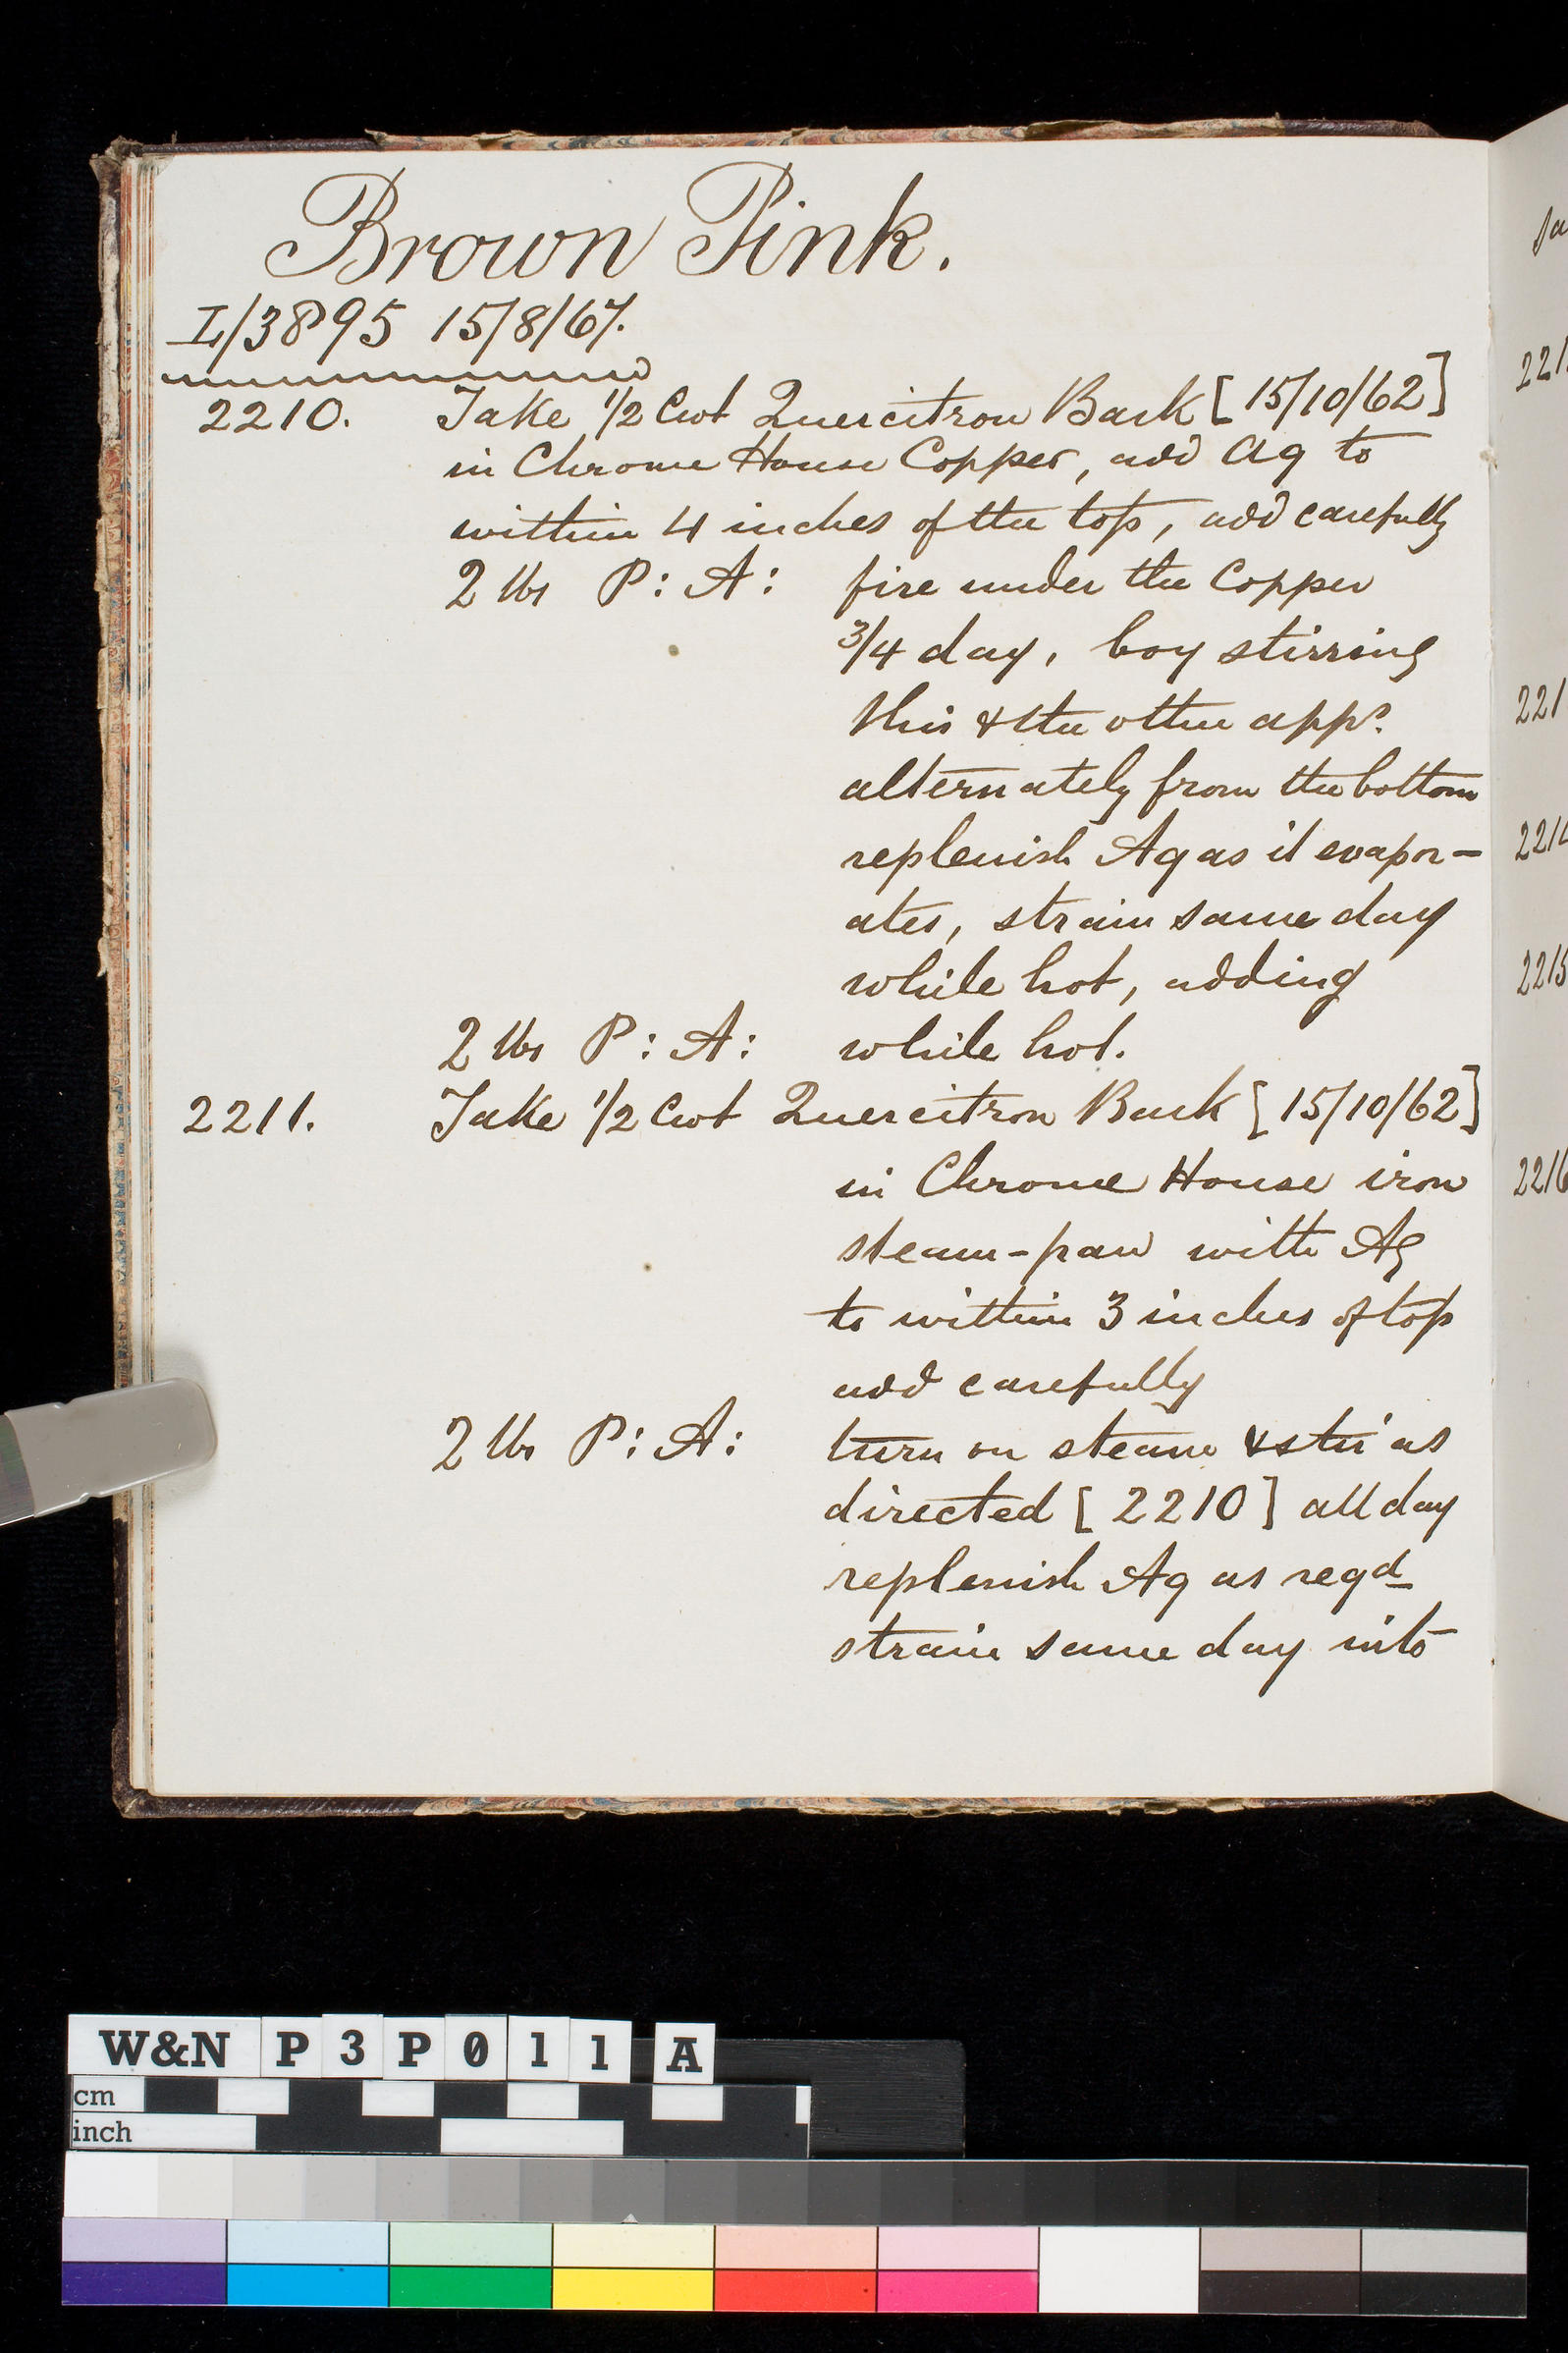 Brown Pink.
L/3895 15/8/67.
2210. Take 1/2 Cwt Quercitron Bark [15/10/62]
in Chrome House Copper, add Aq to
within 4 inches of the top, add carefully
2 lbs P: A: fire under the Copper
3/4 day, boy stirring
this & the other apps.
alternately from the bottom
replenish Aq as it evapor-
ates, strain same day
while hot, adding
2 lbs P: A: while hot.
2211. Take 1/2 Cwt Quercitron Bark [15/10/62]
in Chrome House iron
steam-pan with Aq
to within 3 inches of top
add carefully
2 lbs P: A: turn on steam & stir as
directed [2210] all day
replenish Aq as reqd
strain same day into
221
2215
2216
W&N P3P011A
cm
inch